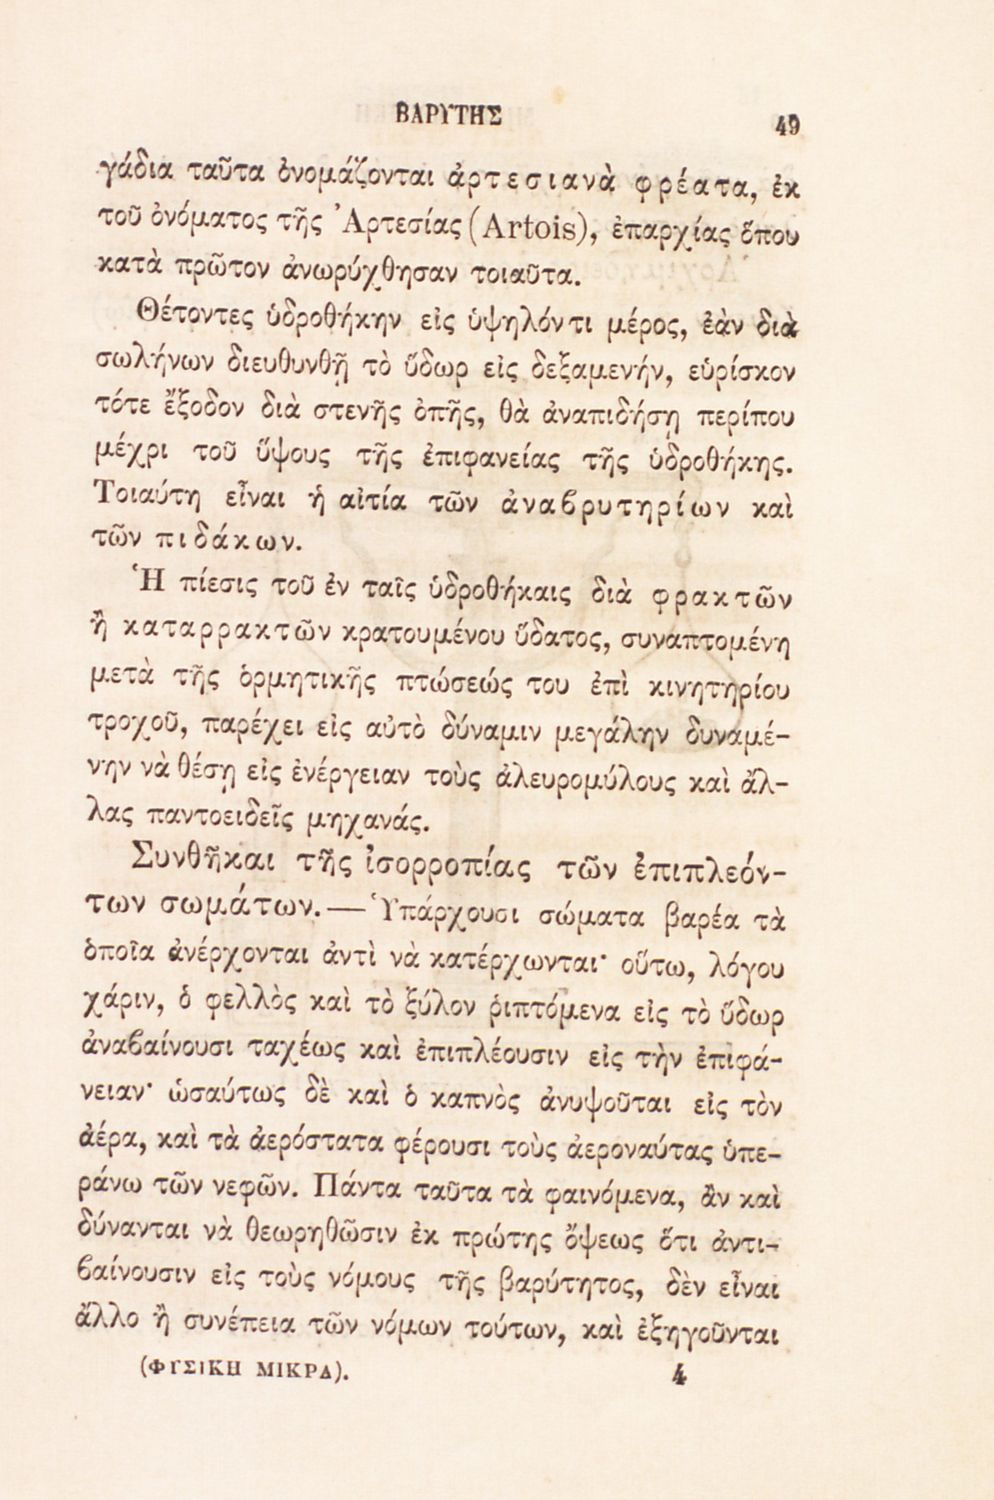 ΒΑΡΥΤΗΣ 49
γάδια ταῦτα ὀνομάζονται ἀρτεσιανὰ φρέατα, ἐκ
τοῦ ὀνόματος τῆς Ἀρτεσίας (Artois), ἐπαρχίας ὅπου
κατὰ πρῶτον ἀνωρύχθησαν τοιαῦτα.
Θέτοντες ὑδροθήκην εἰς ὑψηλόν τι μέρος, ἐὰν διὰ
σωλήνων διευθυνθῇ τὸ ὕδωρ εἰς δεξαμενήν, εὑρίσκον
τότε ἔξοδον διὰ στενῆς ὀπῆς, θὰ ἀναπιδήσῃ περίπου
μέχρι τοῦ ὕψους τῆς ἐπιφανείας τῆς ὑδροθήκης.
Τοιαύτη εἶναι ἡ αἰτία τῶν ἀναβρυτηρίων καὶ
τῶν πιδάκων.
Ἡ πίεσις τοῦ ἐν ταῖς ὑδροθήκαις διὰ φρακτῶν
ἢ καταρρακτῶν κρατουμένου ὕδατος, συναπτομένη
μετὰ τῆς ὁρμητικῆς πτώσεώς του ἐπὶ κινητηρίου
τροχοῦ, παρέχει εἰς αὐτὸ δύναμιν μεγάλην δυναμέ-
νην νὰ θέσῃ εἰς ἐνέργειαν τοὺς ἀλευρομύλους καὶ ἄλ-
λας παντοειδεῖς μηχανάς.
Συνθῆκαι τῆς ἰσορροπίας τῶν ἐπιπλεόν-
των σωμάτων.— Ὑπάρχουσι σώματα βαρέα τὰ
ὁποῖα ἀνέρχονται ἀντὶ νὰ κατέρχωνται· οὕτω, λόγου
χάριν, ὁ φελλὸς καὶ τὸ ξύλον ῥιπτόμενα εἰς τὸ ὕδωρ
ἀναβαίνουσι ταχέως καὶ ἐπιπλέουσιν εἰς τὴν ἐπιφά-
νειαν· ὡσαύτως δὲ καὶ ὁ καπνὸς ἀνυψοῦται εἰς τὸν
ἀέρα, καὶ τὰ ἀερόστατα φέρουσι τοὺς ἀεροναύτας ὑπε-
ράνω τῶν νεφῶν. Πάντα ταῦτα τὰ φαινόμενα, ἂν καὶ
δύνανται νὰ θεωρηθῶσιν ἐκ πρώτης ὄψεως ὅτι ἀντι-
βαίνουσιν εἰς τοὺς νόμους τῆς βαρύτητος, δὲν εἶναι
ἄλλο ἢ συνέπεια τῶν νόμων τούτων, καὶ ἐξηγοῦνται
(ΦΥΣΙΚΗ ΜΙΚΡΑ). 4